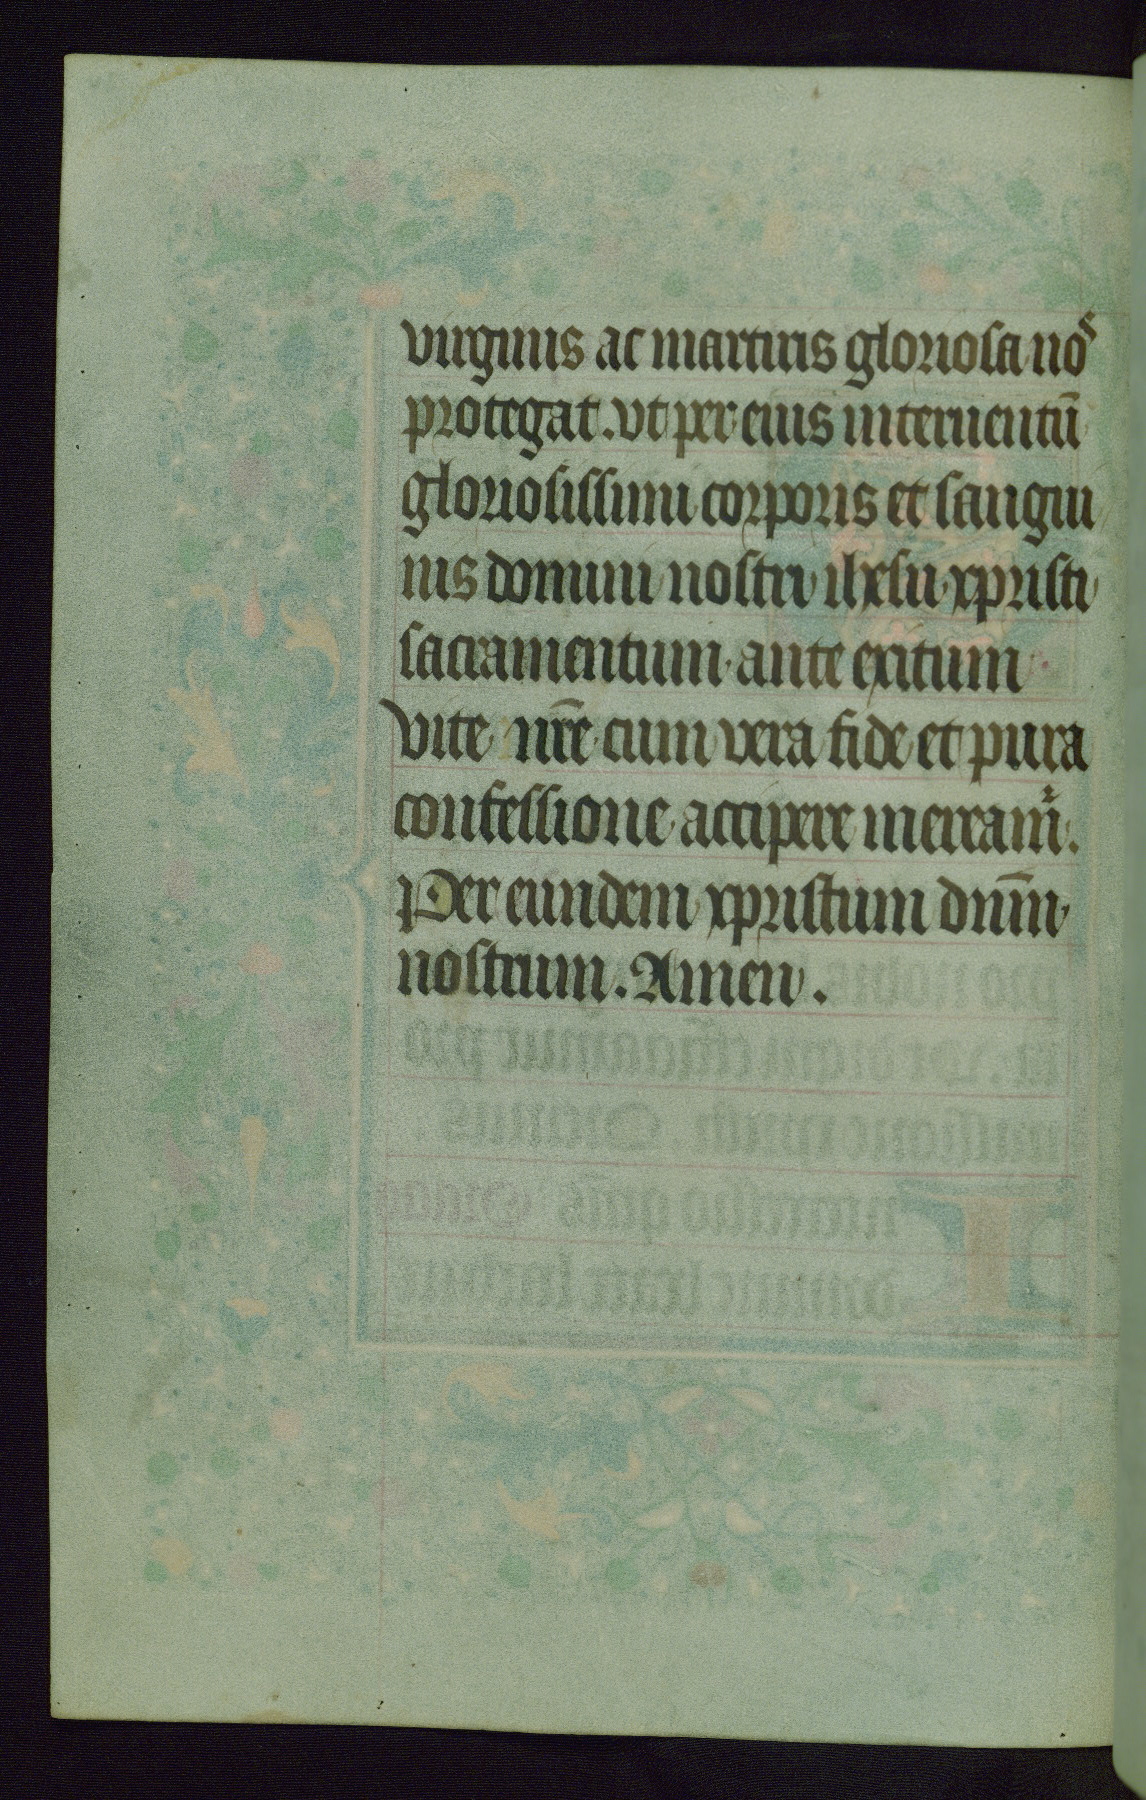 virginis ac martiris gloriosa nos
protegat. vt per eius interuentū
gloriosissimi corporis et sangui
nis domini nostri ihesu xpristi
sacramentum ante exitum
vite nr̄e cum vera fide et pura
confessione accipere meream̃.
Per eundem xpristum dnm̄
nostrum. Amen.